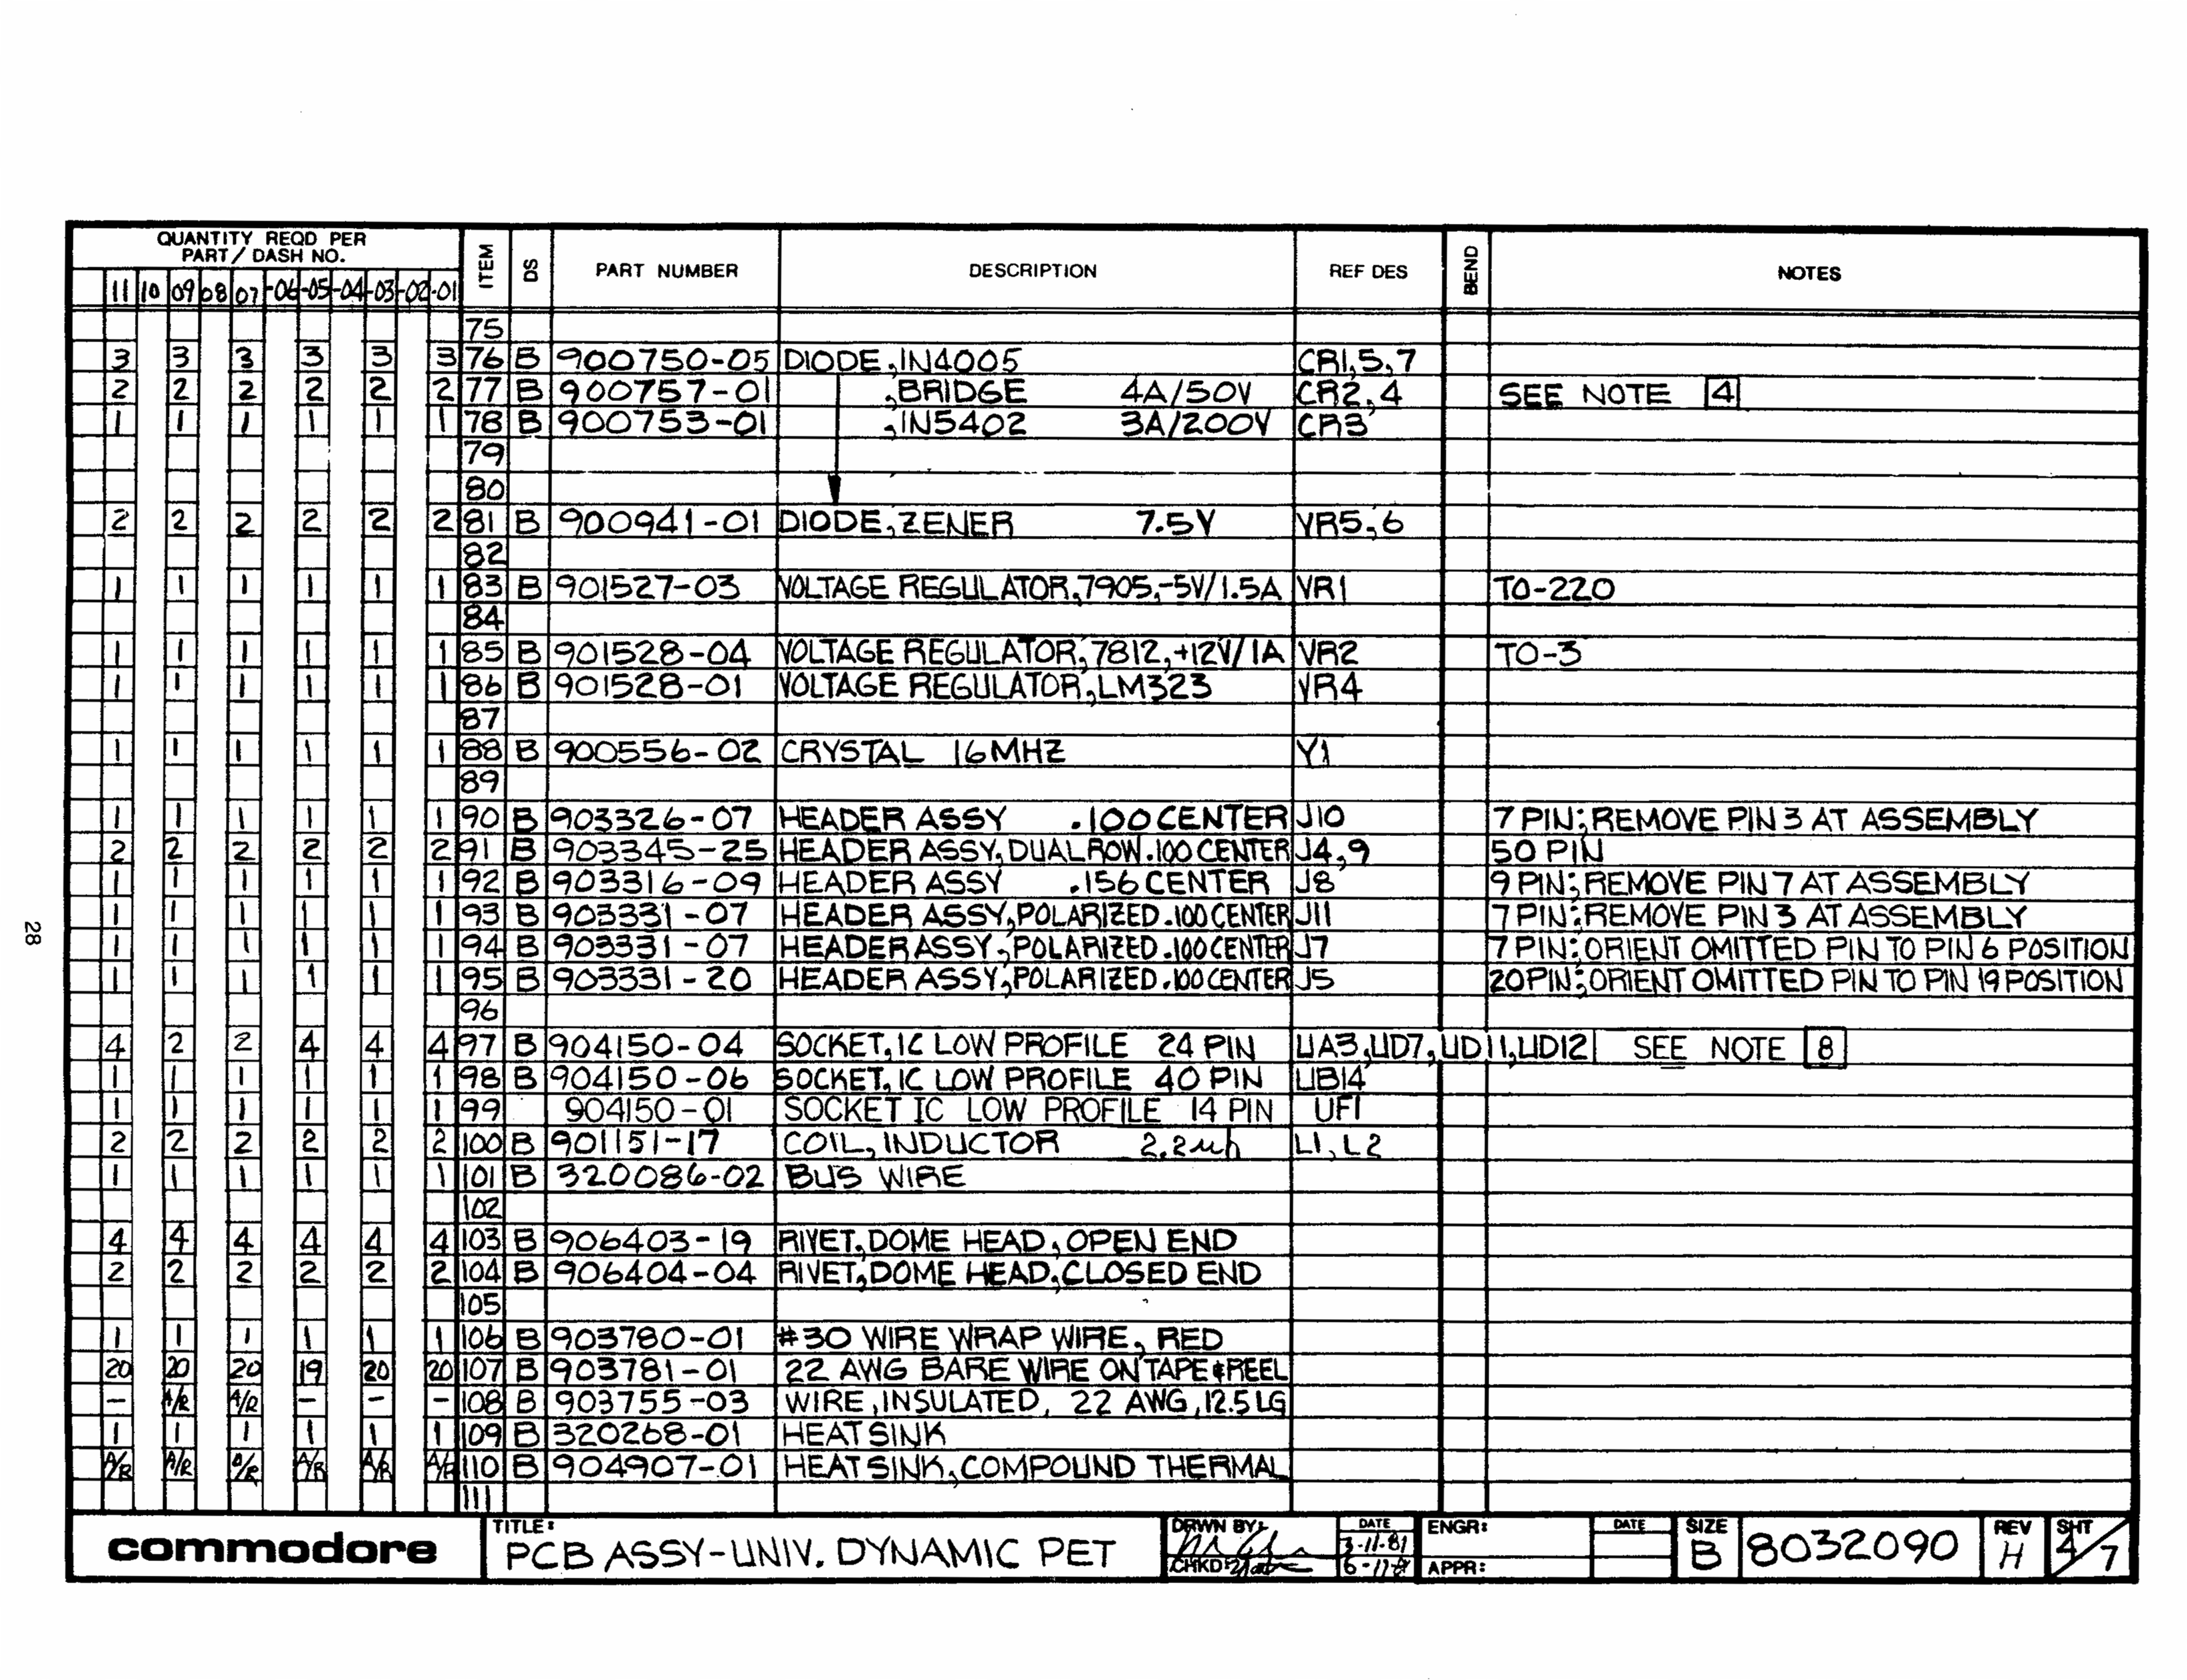 QUANTITY REQD PER
PART/DASH NO.
11 10 09 08 07 -06 -05 -04 -03 -02 -01 ITEM DS PART NUMBER DESCRIPTION REF DES BEND NOTES
75
3 3 3 3 3 3 76 B 900750-05 DIODE, IN4005 CR1,5,7
2 2 2 2 2 2 77 B 900757-01 ,BRIDGE 4A/50V CR2,4 SEE NOTE 4
1 1 1 1 1 1 78 B 900753-01 ,IN5402 3A/200V CR3
79
80
2 2 2 2 2 2 81 B 900941-01 DIODE, ZENER 7.5V VR5,6
82
1 1 1 1 1 1 83 B 901527-03 VOLTAGE REGULATOR, 7905,-5V/1.5A VR1 TO-220
84
1 1 1 1 1 1 85 B 901528-04 VOLTAGE REGULATOR, 7812,+12V/1A VR2 TO-3
1 1 1 1 1 1 86 B 901528-01 VOLTAGE REGULATOR, LM323 VR4
87
1 1 1 1 1 1 88 B 900556-02 CRYSTAL 16MHZ Y1
89
1 1 1 1 1 1 90 B 903326-07 HEADER ASSY .100 CENTER J10 7 PIN; REMOVE PIN 3 AT ASSEMBLY
2 2 2 2 2 2 91 B 903345-25 HEADER ASSY, DUAL ROW .100 CENTER J4,9 50 PIN
1 1 1 1 1 1 92 B 903316-09 HEADER ASSY .156 CENTER J8 9 PIN; REMOVE PIN 7 AT ASSEMBLY
1 1 1 1 1 1 93 B 903331-07 HEADER ASSY, POLARIZED .100 CENTER J11 7 PIN; REMOVE PIN 3 AT ASSEMBLY
1 1 1 1 1 1 94 B 903331-07 HEADER ASSY, POLARIZED .100 CENTER J7 7 PIN; ORIENT OMITTED PIN TO PIN 6 POSITION
1 1 1 1 1 1 95 B 903331-20 HEADER ASSY, POLARIZED .100 CENTER J5 20 PIN; ORIENT OMITTED PIN TO PIN 19 POSITION
96
4 2 2 4 4 4 97 B 904150-04 SOCKET, IC LOW PROFILE 24 PIN UA3, UD7, UD11, UD12 SEE NOTE 8
1 1 1 1 1 1 98 B 904150-06 SOCKET, IC LOW PROFILE 40 PIN UB14
1 1 1 1 1 1 99 904150-01 SOCKET IC LOW PROFILE 14 PIN UF1
2 2 2 2 2 2 100 B 901151-17 COIL, INDUCTOR 2.2uh L1, L2
1 1 1 1 1 1 101 B 320086-02 BUS WIRE
102
4 4 4 4 4 4 103 B 906403-19 RIVET, DOME HEAD, OPEN END
2 2 2 2 2 2 104 B 906404-04 RIVET, DOME HEAD, CLOSED END
105
1 1 1 1 1 1 106 B 903780-01 #30 WIRE WRAP WIRE, RED
20 20 20 19 20 20 107 B 903781-01 22 AWG BARE WIRE ON TAPE & REEL
- A/R A/R - - - 108 B 903755-03 WIRE, INSULATED, 22 AWG, 12.5 LG
1 1 1 1 1 1 109 B 320268-01 HEAT SINK
A/R A/R A/R A/R A/R A/R 110 B 904907-01 HEAT SINK, COMPOUND THERMAL
111
commodore TITLE: PCB ASSY-UNIV. DYNAMIC PET DRWN BY: DATE 3-11-81 ENGR: DATE SIZE B 8032090 REV H SHT 4/7
CHKD: APPR:
28